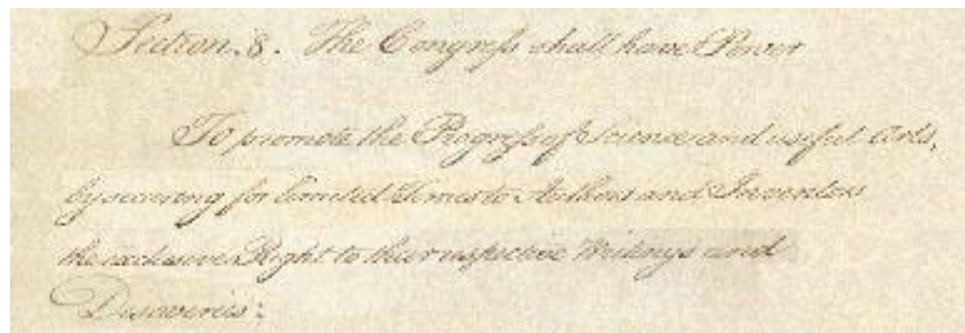 Section. 8. The Congreſs shall have Power
To promote the Progreſs of Science and useful Arts,
by securing for limited Times to Authors and Inventors
the exclusive Right to their respective Writings and
Discoveries;